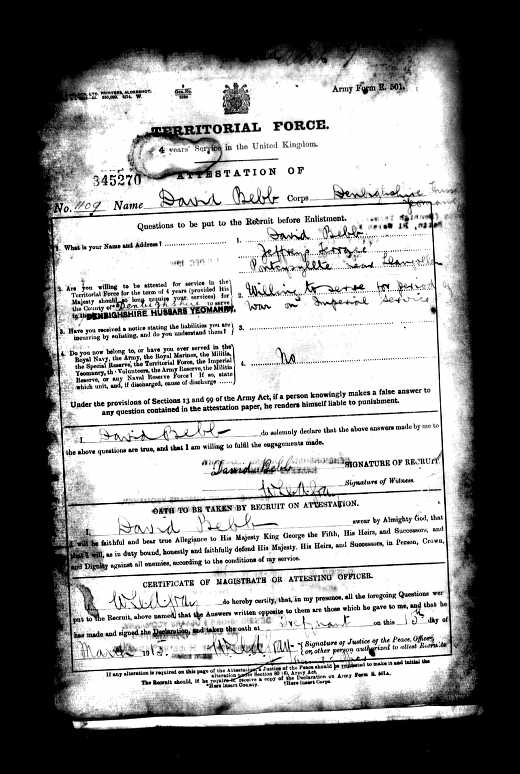 Army Form E. 501.
TERRITORIAL FORCE.
4 years' Service in the United Kingdom.
345270
ATTESTATION OF
No. 1109 Name David Bebb Corps Denbighshire
Questions to be put to the Recruit before Enlistment.
1. What is your Name and Address? 1. David Bebb
near
2. Are you willing to be attested for service in the
Territorial Force for the term of 4 years (provided His
Majesty should so long require your services) for
the County of Denbighshire to serve
in the
DENBIGHSHIRE HUSSARS YEOMANRY
2. Willing to serve for period of
war on Imperial Service
3. Have you received a notice stating the liabilities you are
incurring by enlisting, and do you understand them? 3.
4. Do you now belong to, or have you ever served in the
Royal Navy, the Army, the Royal Marines, the Militia,
the Special Reserve, the Territorial Force, the Imperial
Yeomanry, the Volunteers, the Army Reserve, the Militia
Reserve, or any Naval Reserve Force? If so, state
which unit, and, if discharged, cause of discharge
4. No
Under the provisions of Sections 13 and 99 of the Army Act, if a person knowingly makes a false answer to
any question contained in the attestation paper, he renders himself liable to punishment.
I, David Bebb do solemnly declare that the above answers made by me to
the above questions are true, and that I am willing to fulfil the engagements made.
David Bebb SIGNATURE OF RECRUIT
Signature of Witness.
OATH TO BE TAKEN BY RECRUIT ON ATTESTATION.
I, David Bebb swear by Almighty God, that
I will be faithful and bear true Allegiance to His Majesty King George the Fifth, His Heirs, and Successors, and
that I will, as in duty bound, honestly and faithfully defend His Majesty, His Heirs, and Successors, in Person, Crown,
and Dignity against all enemies, according to the conditions of my service.
CERTIFICATE OF MAGISTRATE OR ATTESTING OFFICER.
I, do hereby certify, that, in my presence, all the foregoing Questions were
put to the Recruit, above named, that the Answers written opposite to them are those which he gave to me, and that he
has made and signed the Declaration, and taken the oath at on this 15 day of
March
Signature of Justice of the Peace, Officer,
or other person authorized to attest Recruits
If any alteration is required on this page of the Attestation, a Justice of the Peace should be requested to make it and initial the
alteration under Section 80 (6), Army Act.
The Recruit should, if he require it, receive a copy of the Declaration on Army Form E. 501A.
*Here insert County. †Here insert Corps.